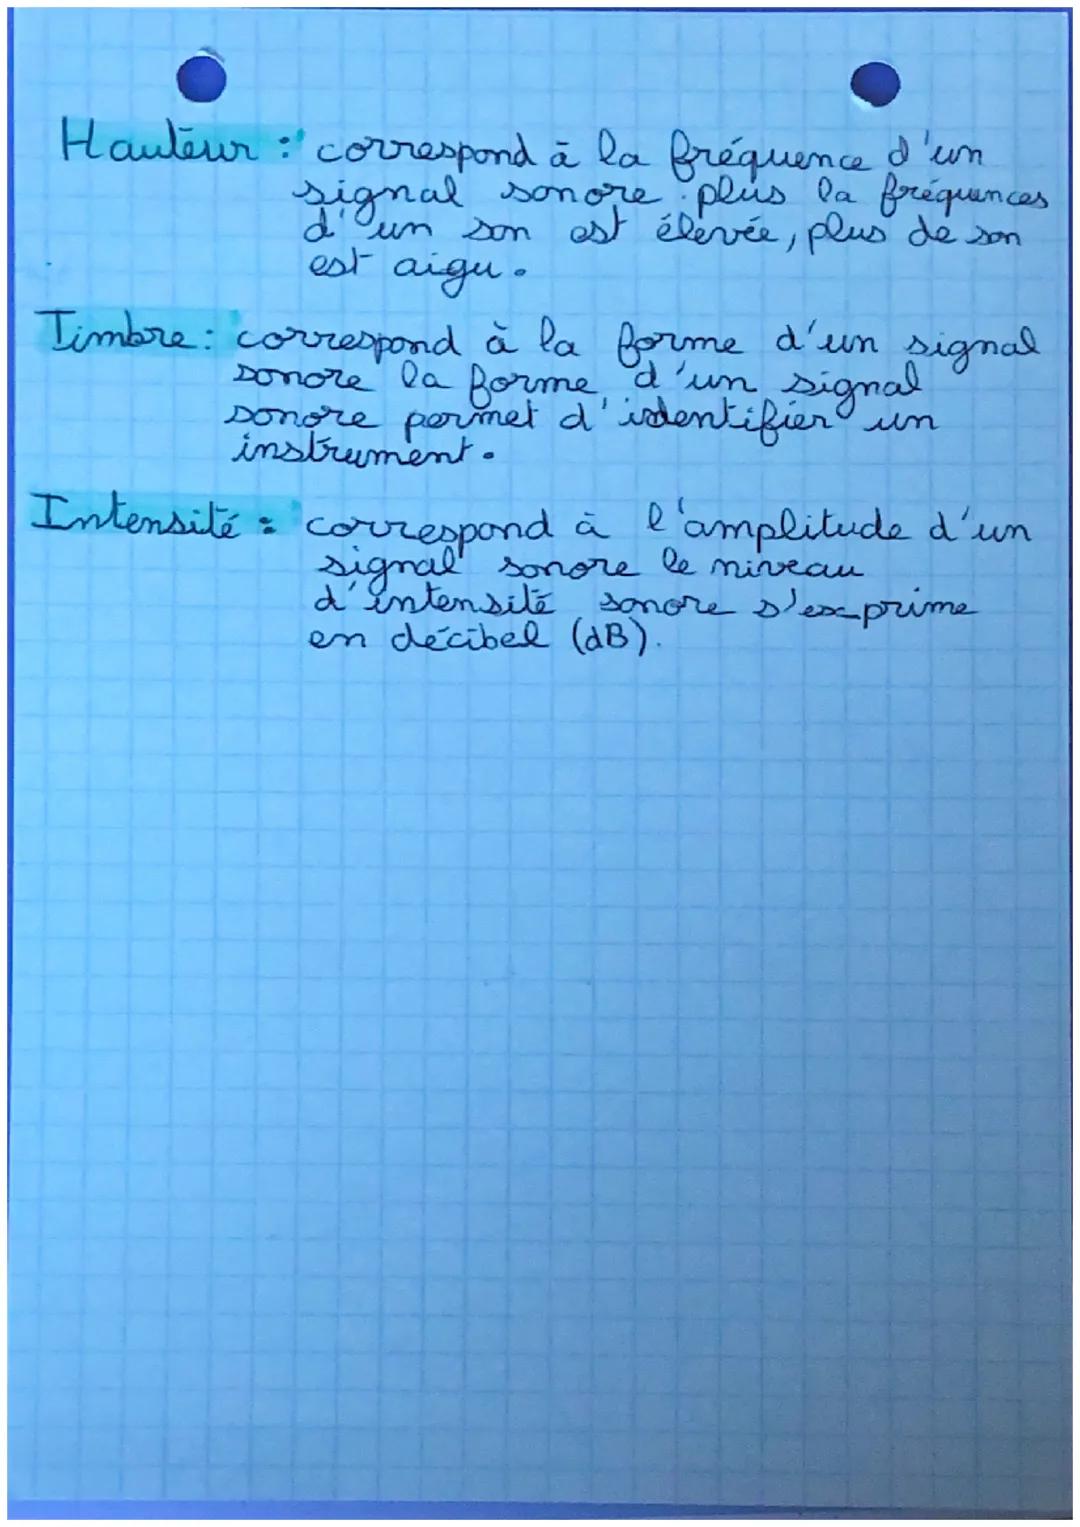 Hauteur : correspond à la fréquence d'un
signal sonore. plus la fréquences
d'un son est élevée, plus de son
est aigu.
Timbre : correspond à la forme d'un signal
sonore la forme d'un signal
sonore permet d'identifier un
instrument.
Intensité : correspond à l'amplitude d'un
signal sonore le niveau
d'intensité sonore s'exprime
en décibel (dB).